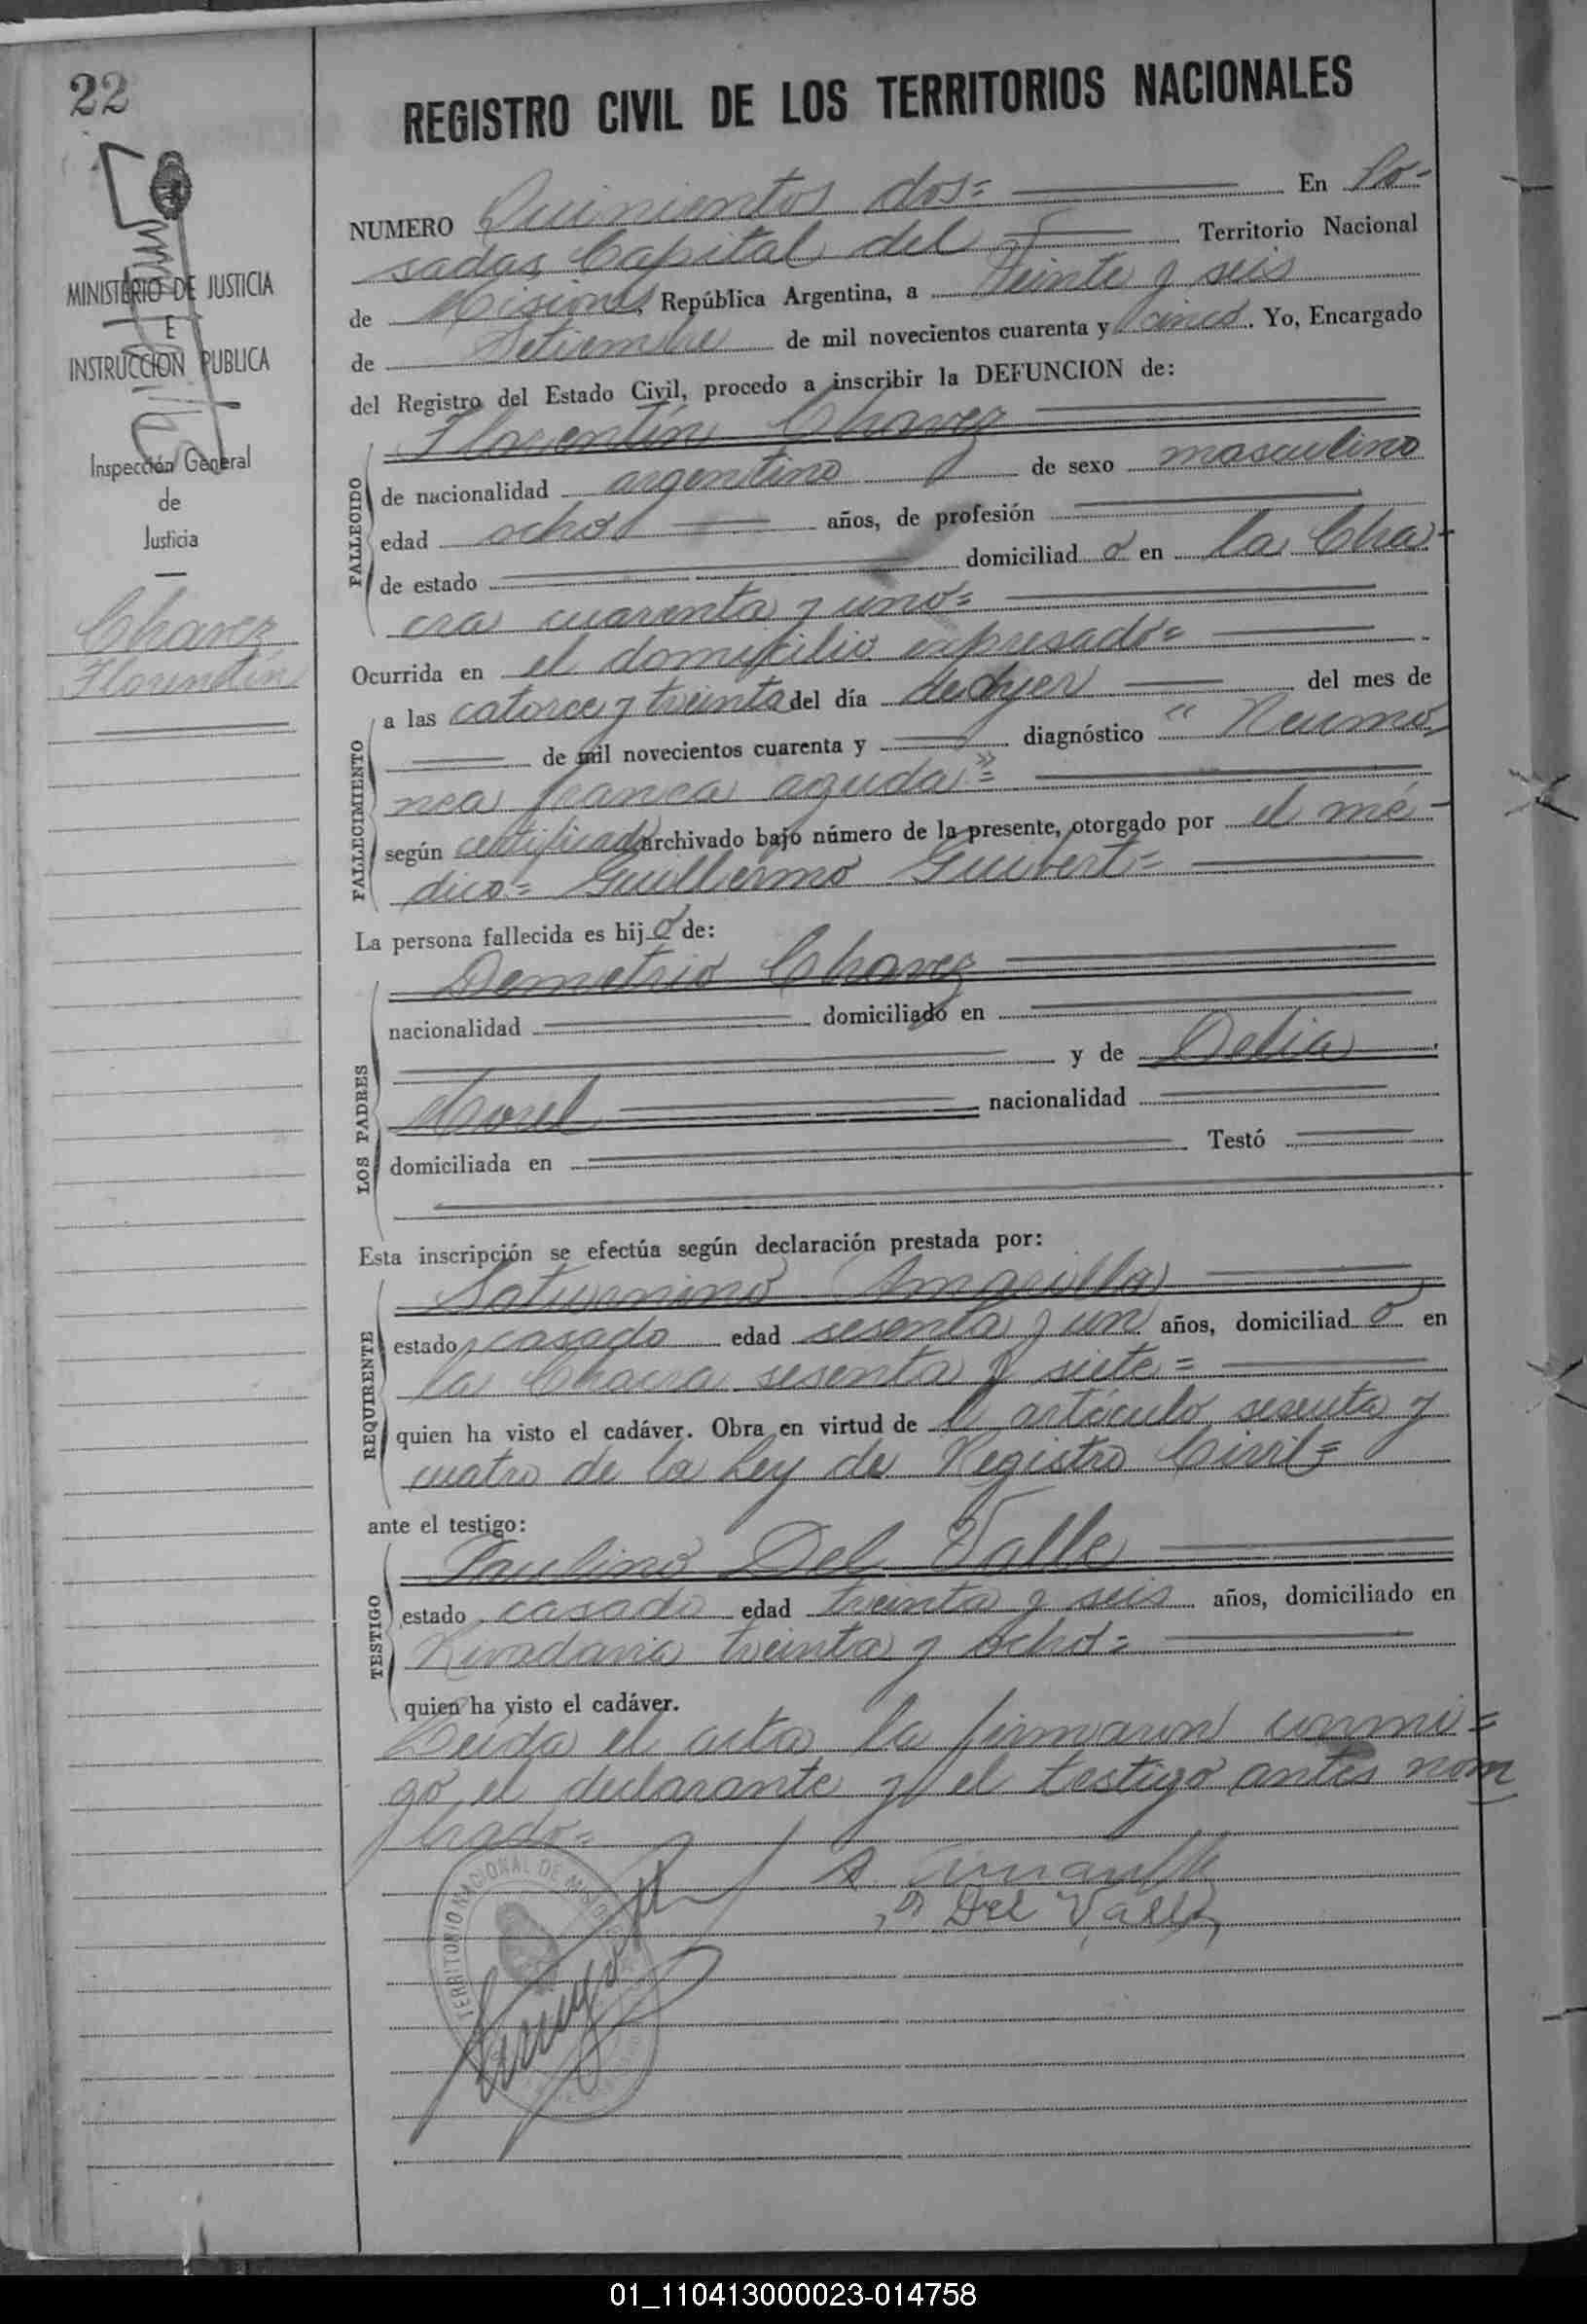 22
REGISTRO CIVIL DE LOS TERRITORIOS NACIONALES
MINISTERIO DE JUSTICIA
E
INSTRUCCION PUBLICA
Inspección General
de
Justicia
Chavez
Florentín
NUMERO Quinientos dos= En Po-
sadas Capital del Territorio Nacional
de Misiones, República Argentina, a Veinte y seis
de Setiembre de mil novecientos cuarenta y cinco. Yo, Encargado
del Registro del Estado Civil, procedo a inscribir la DEFUNCION de:
Florentín Chavez
FALLECIDO
de nacionalidad argentino de sexo masculino
edad ocho años, de profesión
de estado domiciliad o en la Cha-
cra cuarenta y uno=
Ocurrida en el domicilio expresado=
FALLECIMIENTO
a las catorce y treinta del día de Ayer del mes de
de mil novecientos cuarenta y diagnóstico "Neumo-
nea franca aguda"=
según certificado archivado bajo número de la presente, otorgado por el mé-
dico= Guillermo Guibert=
La persona fallecida es hij o de:
LOS PADRES
Demetrio Chavez
nacionalidad domiciliado en
y de Delia
Morel nacionalidad
domiciliada en Testó
Esta inscripción se efectúa según declaración prestada por:
REQUIRENTE
Saturnino Amarilla
estado casado edad sesenta y un años, domiciliad o en
la Chacra sesenta y siete=
quien ha visto el cadáver. Obra en virtud de l artículo sesenta y
cuatro de la Ley de Registro Civil=
ante el testigo:
TESTIGO
Paulino Del Valle
estado casado edad treinta y seis años, domiciliado en
Rivadavia treinta y ocho=
quien ha visto el cadáver.
Leída el acta, la firmaron conmi=
go el declarante y el testigo antes nom
brado=
S. Amarilla
P Del Valle
TERRITORIO NACIONAL DE MISIONES
01_110413000023-014758